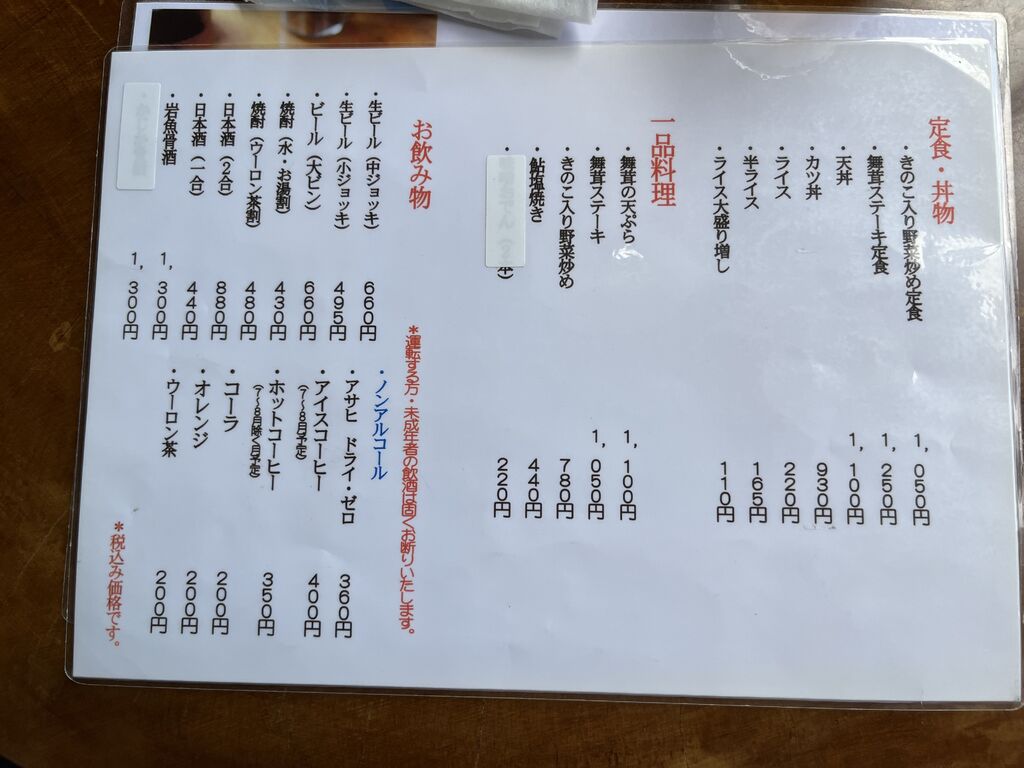 定食・丼物
・きのこ入り野菜炒め定食 1,050円
・舞茸ステーキ定食 1,250円
・天丼 1,100円
・カツ丼 930円
・ライス 220円
・半ライス 165円
・ライス大盛り増し 110円
一品料理
・舞茸の天ぷら 1,100円
・舞茸ステーキ 1,050円
・きのこ入り野菜炒め 780円
・鮎塩焼き 440円
・ 220円
お飲み物
*運転する方・未成年者の飲酒は固くお断りいたします。
・生ビール(中ジョッキ) 660円
・生ビール(小ジョッキ) 495円
・ビール(大ビン) 660円
・焼酎(水・お湯割) 430円
・焼酎(ウーロン茶割) 480円
・日本酒(2合) 880円
・日本酒(一合) 440円
・岩魚骨酒 1,300円
・ 1,300円
・ノンアルコール
・アサヒ ドライ・ゼロ 360円
・アイスコーヒー 400円
(7~8月予定)
・ホットコーヒー 350円
(7~8月除く月予定)
・コーラ 200円
・オレンジ 200円
・ウーロン茶 200円
*税込み価格です。